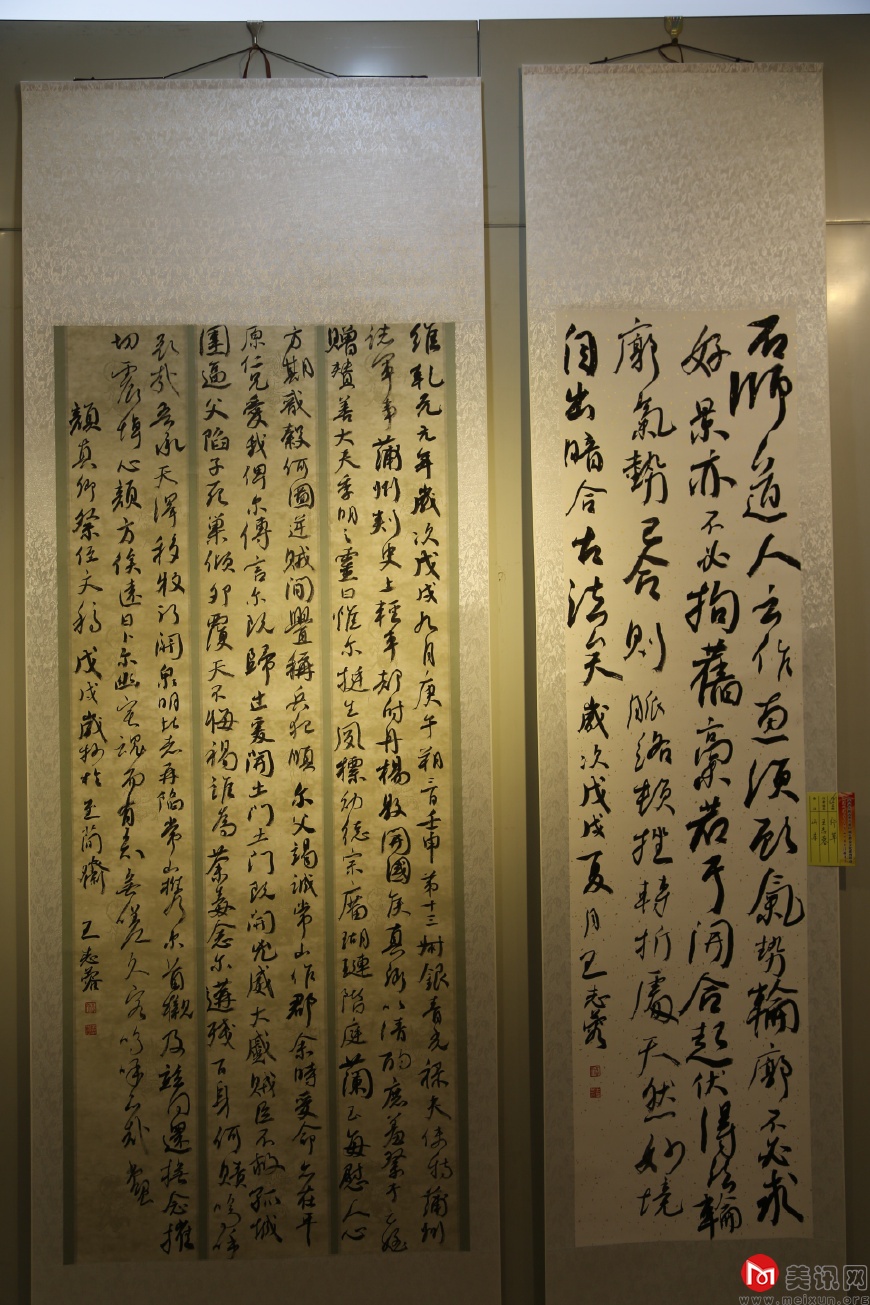 石師道人云作画須顧氣勢輪廓不必求
好景亦不必拘舊稾若于開合起伏得法輪
廓氣勢已合則脈絡頓挫轉折處天然妙境
自出暗合古法矣歲次戊戌夏月王志蓉
維乾元元年歲次戊戌九月庚午朔三日壬申第十三叔銀青光禄夫使持蒲州
諸軍事蒲州刺史上輕車都尉丹楊縣開國侯真卿以清酌庶羞祭于亡姪
贈贊善大夫季明之靈曰惟尔挺生夙標幼德宗廟瑚璉階庭蘭玉每慰人心
方期戩穀何圖逆賊間釁稱兵犯順尔父竭誠常山作郡余時受命亦在平
原仁兄愛我俾尔傳言尔既歸止爰開土門土門既開凶威大蹙賊臣不救孤城
圍逼父陷子死巢傾卵覆天不悔禍誰為荼毒念尔遘殘百身何贖嗚呼
哀哉吾承天澤移牧河關泉明比者再陷常山携尔首櫬及茲同還撫念摧
切震悼心顏方俟遠日卜尔幽宅魂而有知無嗟久客嗚呼哀哉尚饗
顏真卿祭侄文稿戊戌歲抄於至簡齋王志蓉
美讯网
www.meixun.org